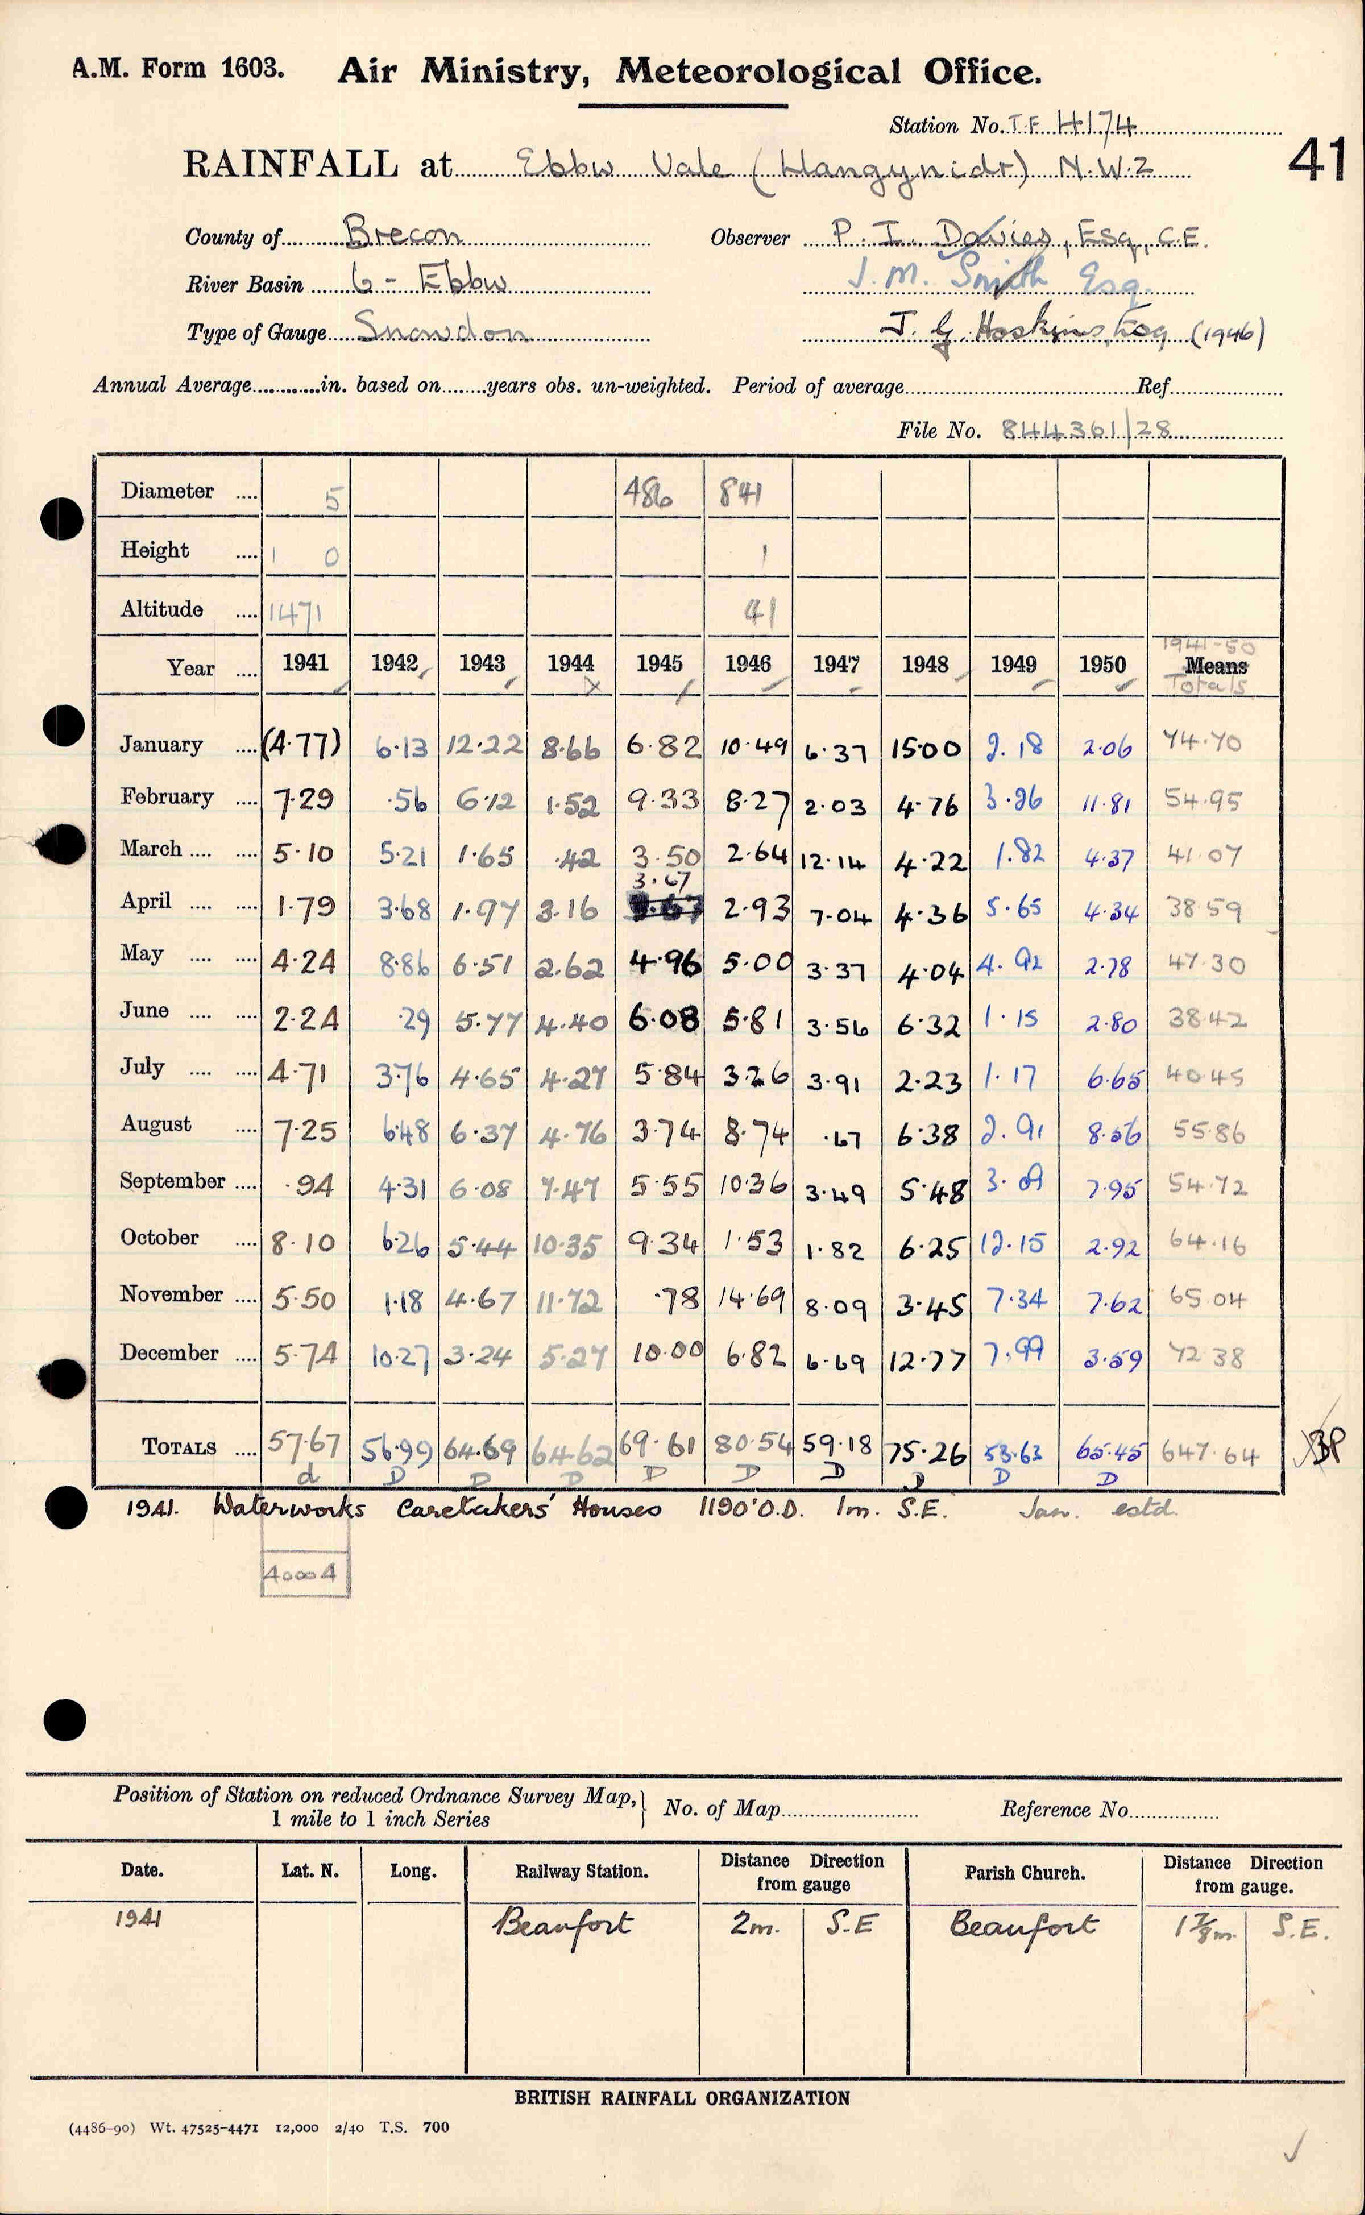 A.M. Form 1603. Air Ministry, Meteorological Office.
Station No. T.F. 4174
RAINFALL at Ebbw Vale (Llangynidr) N.W.2
41
County of Brecon Observer P. I. Davies, Esq., C.E.
River Basin 6 - Ebbw J. M. Smith Esq.
Type of Gauge Snowdon J. G. Hoskins, Esq (1946)
Annual Average in. based on years obs. un-weighted. Period of average Ref.
File No. 844361/28
Diameter 5 486 841
Height 1 0 1
Altitude 1471 41
1941-50
Year 1941 1942 1943 1944 1945 1946 1947 1948 1949 1950 Means
Totals
January (4.77) 6.13 12.22 8.66 6.82 10.49 6.37 15.00 2.18 2.06 74.70
February 7.29 .56 6.12 1.52 9.33 8.27 2.03 4.76 3.26 11.81 54.95
March 5.10 5.21 1.65 .42 3.50 2.64 12.14 4.22 1.82 4.37 41.07
April 1.79 3.68 1.97 3.16 3.67 2.93 7.04 4.36 5.65 4.34 38.59
May 4.24 8.86 6.51 2.62 4.96 5.00 3.37 4.04 4.92 2.78 47.30
June 2.24 .29 5.77 4.40 6.08 5.81 3.56 6.32 1.15 2.80 38.42
July 4.71 3.76 4.65 4.27 5.84 3.26 3.91 2.23 1.17 6.65 40.45
August 7.25 6.48 6.37 4.76 3.74 8.74 .67 6.38 2.91 8.56 55.86
September .94 4.31 6.08 7.47 5.55 10.36 3.49 5.48 3.09 7.95 54.72
October 8.10 6.26 5.44 10.35 9.34 1.53 1.82 6.25 12.15 2.92 64.16
November 5.50 1.18 4.67 11.72 .78 14.69 8.09 3.45 7.34 7.62 65.04
December 5.74 10.27 3.24 5.27 10.00 6.82 6.69 12.77 7.99 3.59 72.38
TOTALS 57.67 56.99 64.69 64.62 69.61 80.54 59.18 75.26 53.63 65.45 647.64
d D D D D D D D D D
1941. Waterworks Caretakers' Houses 1190' O.D. 1m. S.E. Jan. estd.
40004
Position of Station on reduced Ordnance Survey Map,
1 mile to 1 inch Series
No. of Map Reference No.
Date. Lat. N. Long. Railway Station. Distance from gauge Direction Parish Church. Distance from gauge. Direction
1941 Beaufort 2m. S.E Beaufort 1 7/8m. S.E.
BRITISH RAINFALL ORGANIZATION
(4486-90) Wt. 47525-4471 12,000 2/40 T.S. 700